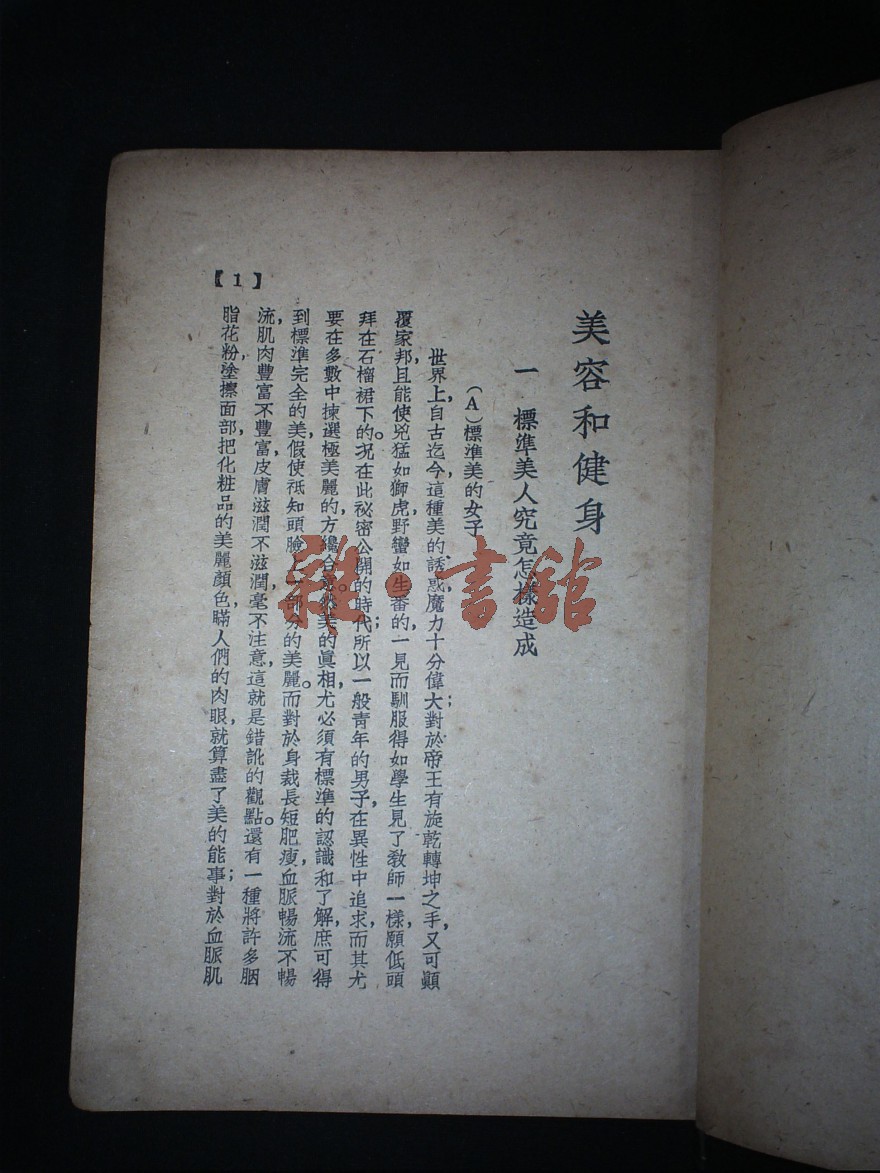 美容和健身
一 標準美人究竟怎樣造成
(A)標準美的女子
世界上，自古迄今，這種美的誘惑，魔力十分偉大；對於帝王有旋乾轉坤之手，又可顚
覆家邦，且能使兇猛如獅虎，野蠻如生番的，一見而馴服得如學生見了教師一樣，願低頭
拜在石榴裙下的。況在此祕密公開的時代；所以一般青年的男子，在異性中追求，而其尤
要在多數中揀選極美麗的，方纔合意。然美的眞相，尤必須有標準的認識和了解，庶可得
到標準完全的美，假使祗知頭臉上一部分的美麗。而對於身裁長短肥瘦，血脈暢流不暢
流，肌肉豐富不豐富，皮膚滋潤不滋潤，毫不注意，這就是錯訛的觀點。還有一種將許多胭
脂花粉塗擦面部，把化粧品的美麗顏色，瞞人們的肉眼，就算盡了美的能事；對於血脈肌
【1】
雜·書館